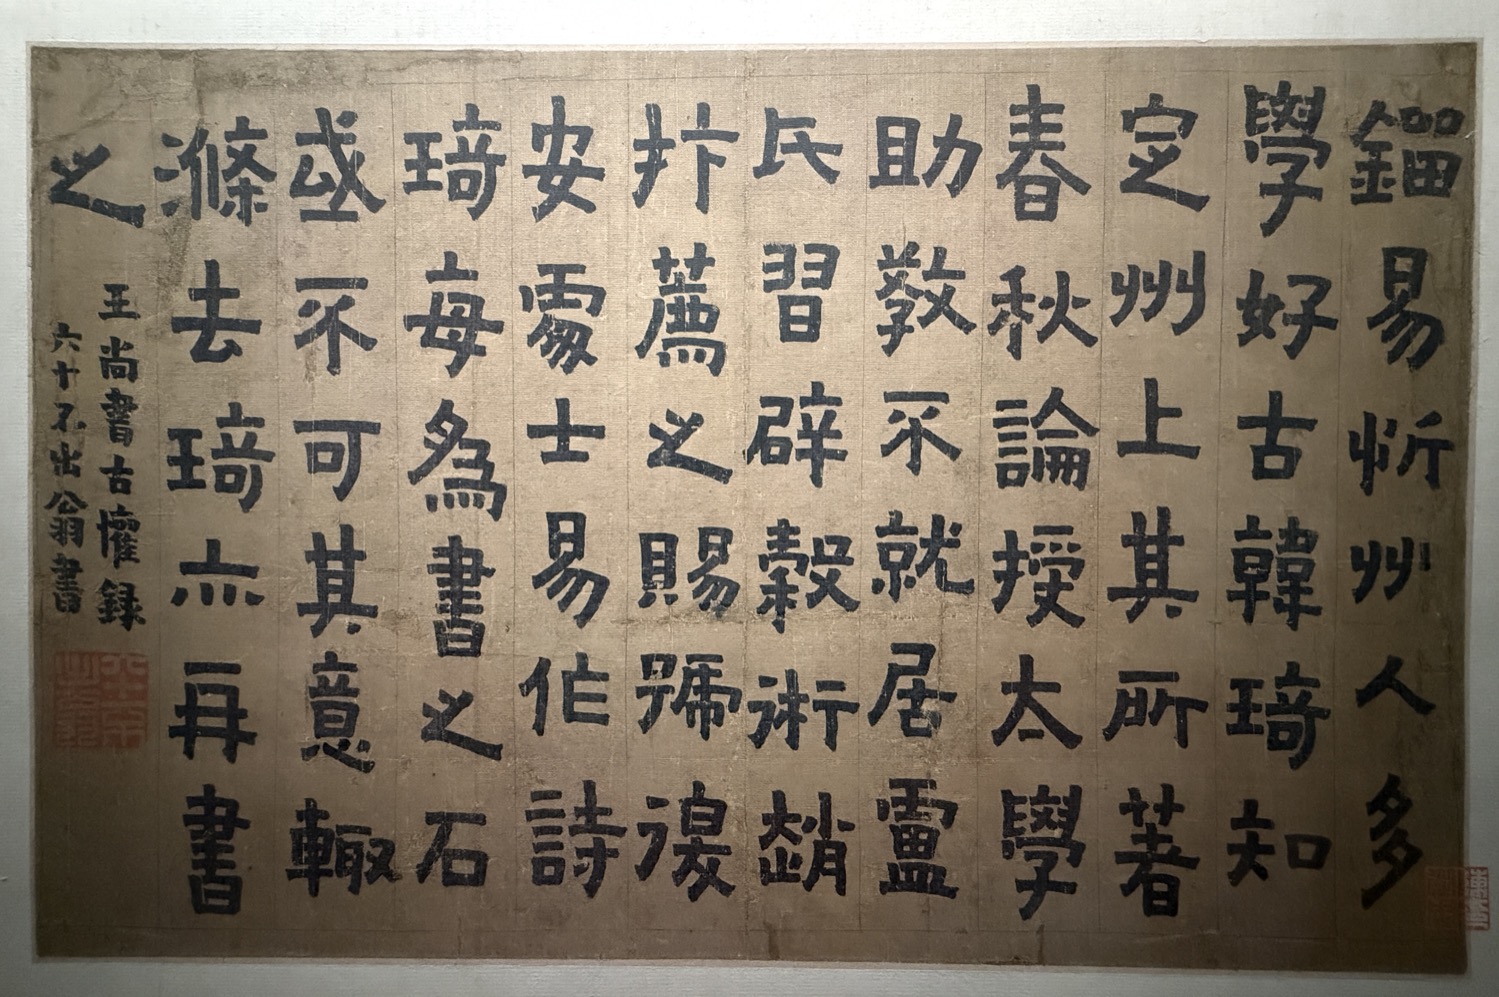 鎦易忻州人多
學好古韓琦知
定州上其所著
春秋論授太學
助教不就居盧
氏習辟穀術趙
抃薦之賜號退
安處士易作詩
琦每為書之石
或不可其意輒
滌去琦亦再書
之
王尚書古懽錄
六十不出翁書